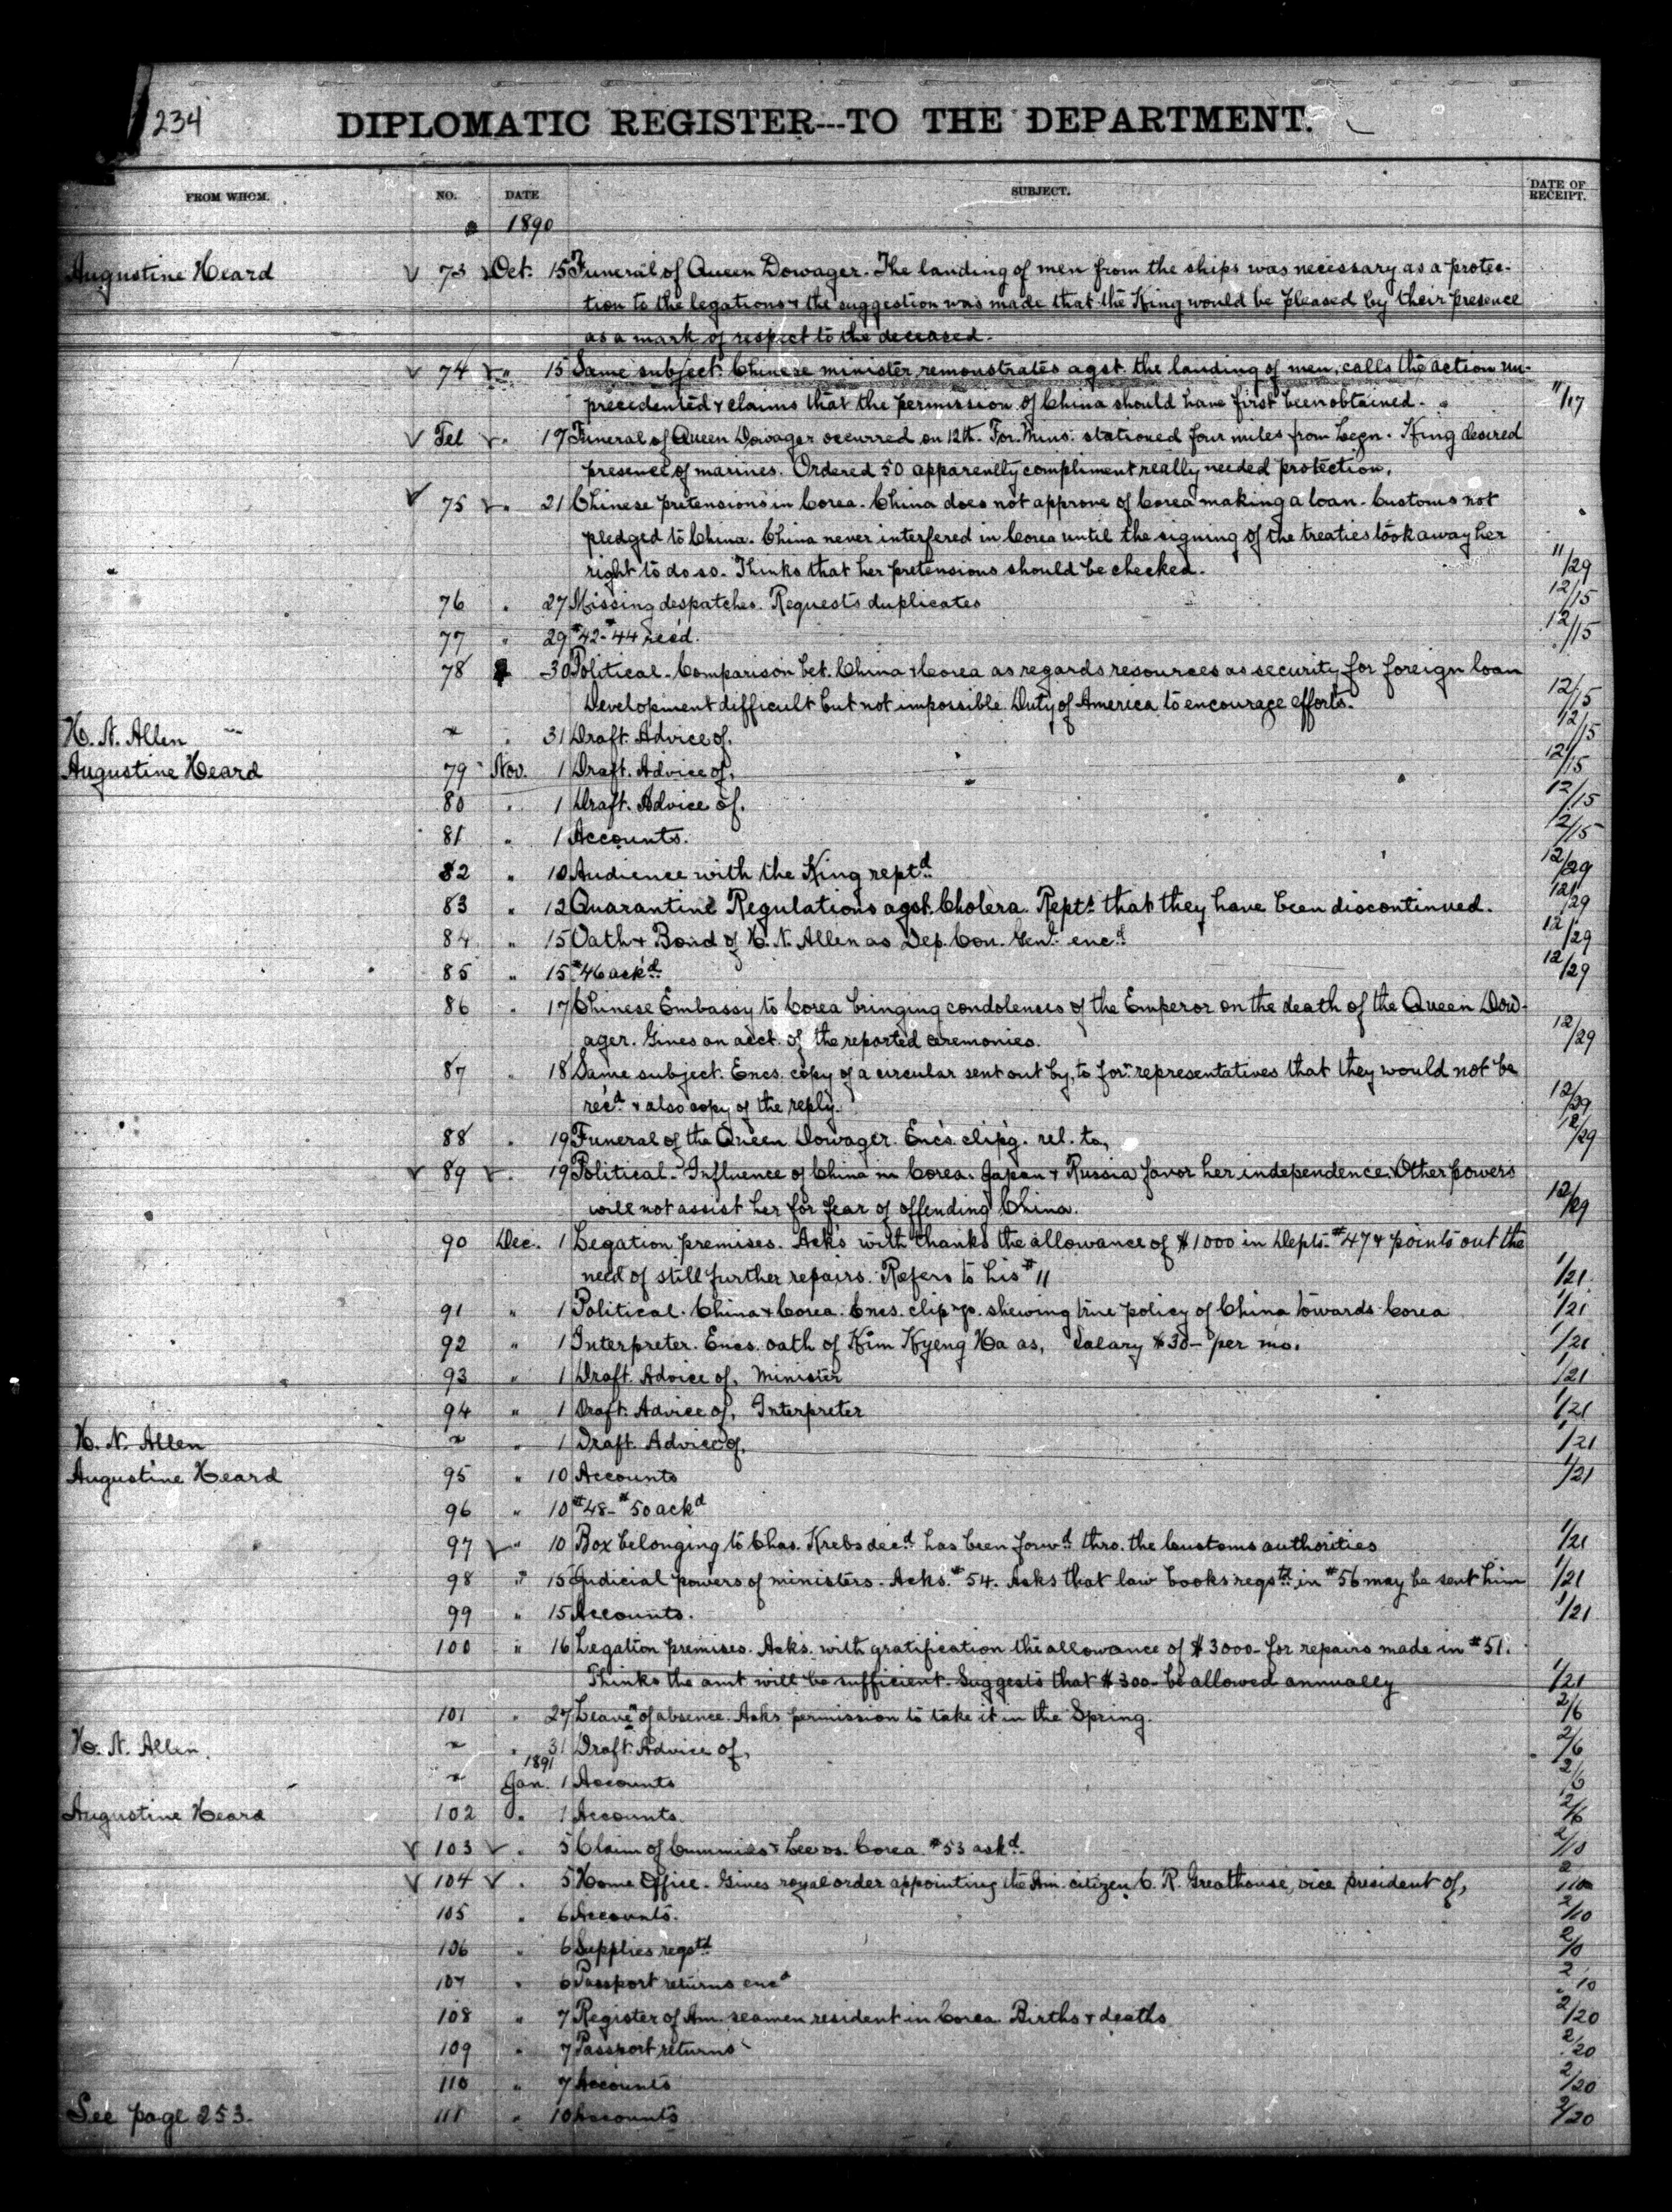 234
DIPLOMATIC REGISTER---TO THE DEPARTMENT.
FROM WHOM. NO. DATE SUBJECT. DATE OF RECEIPT.
1890
Augustine Heard 73 Oct. 15 Funeral of Queen Dowager. The landing of men from the ships was necessary as a protec-
tion to the legations & the suggestion was made that the King would be pleased by their presence
as a mark of respect to the deceased.
74 " 15 Same subject. Chinese minister remonstrates agst. the landing of men, calls the action un-
precedented & claims that the permission of China should have first been obtained. 11/17
Tel " 19 Funeral of Queen Dowager occurred on 12th. For. Mins. stationed four miles from Legn. King desired
presence of marines. Ordered 50 apparently compliment really needed protection.
75 " 21 Chinese pretensions in Corea. China does not approve of Corea making a loan. Customs not
pledged to China. China never interfered in Corea until the signing of the treaties took away her
right to do so. Thinks that her pretensions should be checked. 11/29
76 " 27 Missing despatches. Requests duplicates 12/15
77 " 29 #42-#44 rec'd. 12/15
78 " 30 Political. Comparison bet. China & Corea as regards resources as security for foreign loan
Development difficult but not impossible. Duty of America to encourage efforts. 12/15
H. N. Allen " 31 Draft. Advice of. 12/15
Augustine Heard 79 Nov. 1 Draft. Advice of. 12/15
80 " 1 Draft. Advice of. 12/15
81 " 1 Accounts. 12/15
82 " 10 Audience with the King reptd 12/29
83 " 12 Quarantine Regulations agst. Cholera. Repts that they have been discontinued. 12/29
84 " 15 Oath & Bond of H. N. Allen as Dep. Con. Genl. encd 12/29
85 " 15 #46 ackd. 12/29
86 " 17 Chinese Embassy to Corea bringing condolences of the Emperor on the death of the Queen Dow-
ager. Gives an acct. of the reported ceremonies. 12/29
87 " 18 Same subject. Encs. copy of a circular sent out by, to forn representatives that they would not be
rec'd & also copy of the reply. 12/29
88 " 19 Funeral of the Queen Dowager. Enc's. clip'g. rel. to, 12/29
89 " 19 Political. Influence of China in Corea. Japan & Russia favor her independence. Other powers
will not assist her for fear of offending China. 12/29
90 Dec. 1 Legation premises. Ack's with thanks the allowance of $1000 in Depts. #47 & points out the
need of still further repairs. Refers to his #11 1/21
91 " 1 Political. China & Corea. Encs. clip'gs. shewing true policy of China towards Corea 1/21
92 " 1 Interpreter. Encs. oath of Kim Kyeng Ha as, Salary $30- per mo. 1/21
93 " 1 Draft. Advice of, Minister 1/21
94 " 1 Draft. Advice of, Interpreter 1/21
H. N. Allen " 1 Draft. Advice of, 1/21
Augustine Heard 95 " 10 Accounts 1/21
96 " 10 #48-#50 ackd
97 " 10 Box belonging to Chas. Krebs decd has been forwd thro. the Customs authorities 1/21
98 " 15 Judicial powers of ministers. Acks. #54. Asks that law books reqstd in #56 may be sent him 1/21
99 " 15 Accounts. 1/21
100 " 16 Legation premises. Ack's. with gratification the allowance of $3000- for repairs made in #51.
Thinks the amt will be sufficient. Suggests that $300- be allowed annually 1/21
101 " 27 Leave of absence. Asks permission to take it in the Spring. 2/6
H. N. Allen. " 31 Draft. Advice of, 2/6
1891
Jan. 1 Accounts 2/6
Augustine Heard 102 " 1 Accounts. 2/6
103 " 5 Claim of & Lee vs. Corea. #53 ackd. 2/10
104 " 5 Home Office. Gives royal order appointing the Am. citizen C. R. Greathouse, vice president of, 2/10
105 " 6 Accounts. 2/10
106 " 6 Supplies reqstd 2/10
107 " 6 Passport returns encd 2/10
108 " 7 Register of Am. seamen resident in Corea. Births & deaths 2/20
109 " 7 Passport returns 2/20
110 " 7 Accounts 2/20
See page 253. 111 " 10 Accounts 2/20